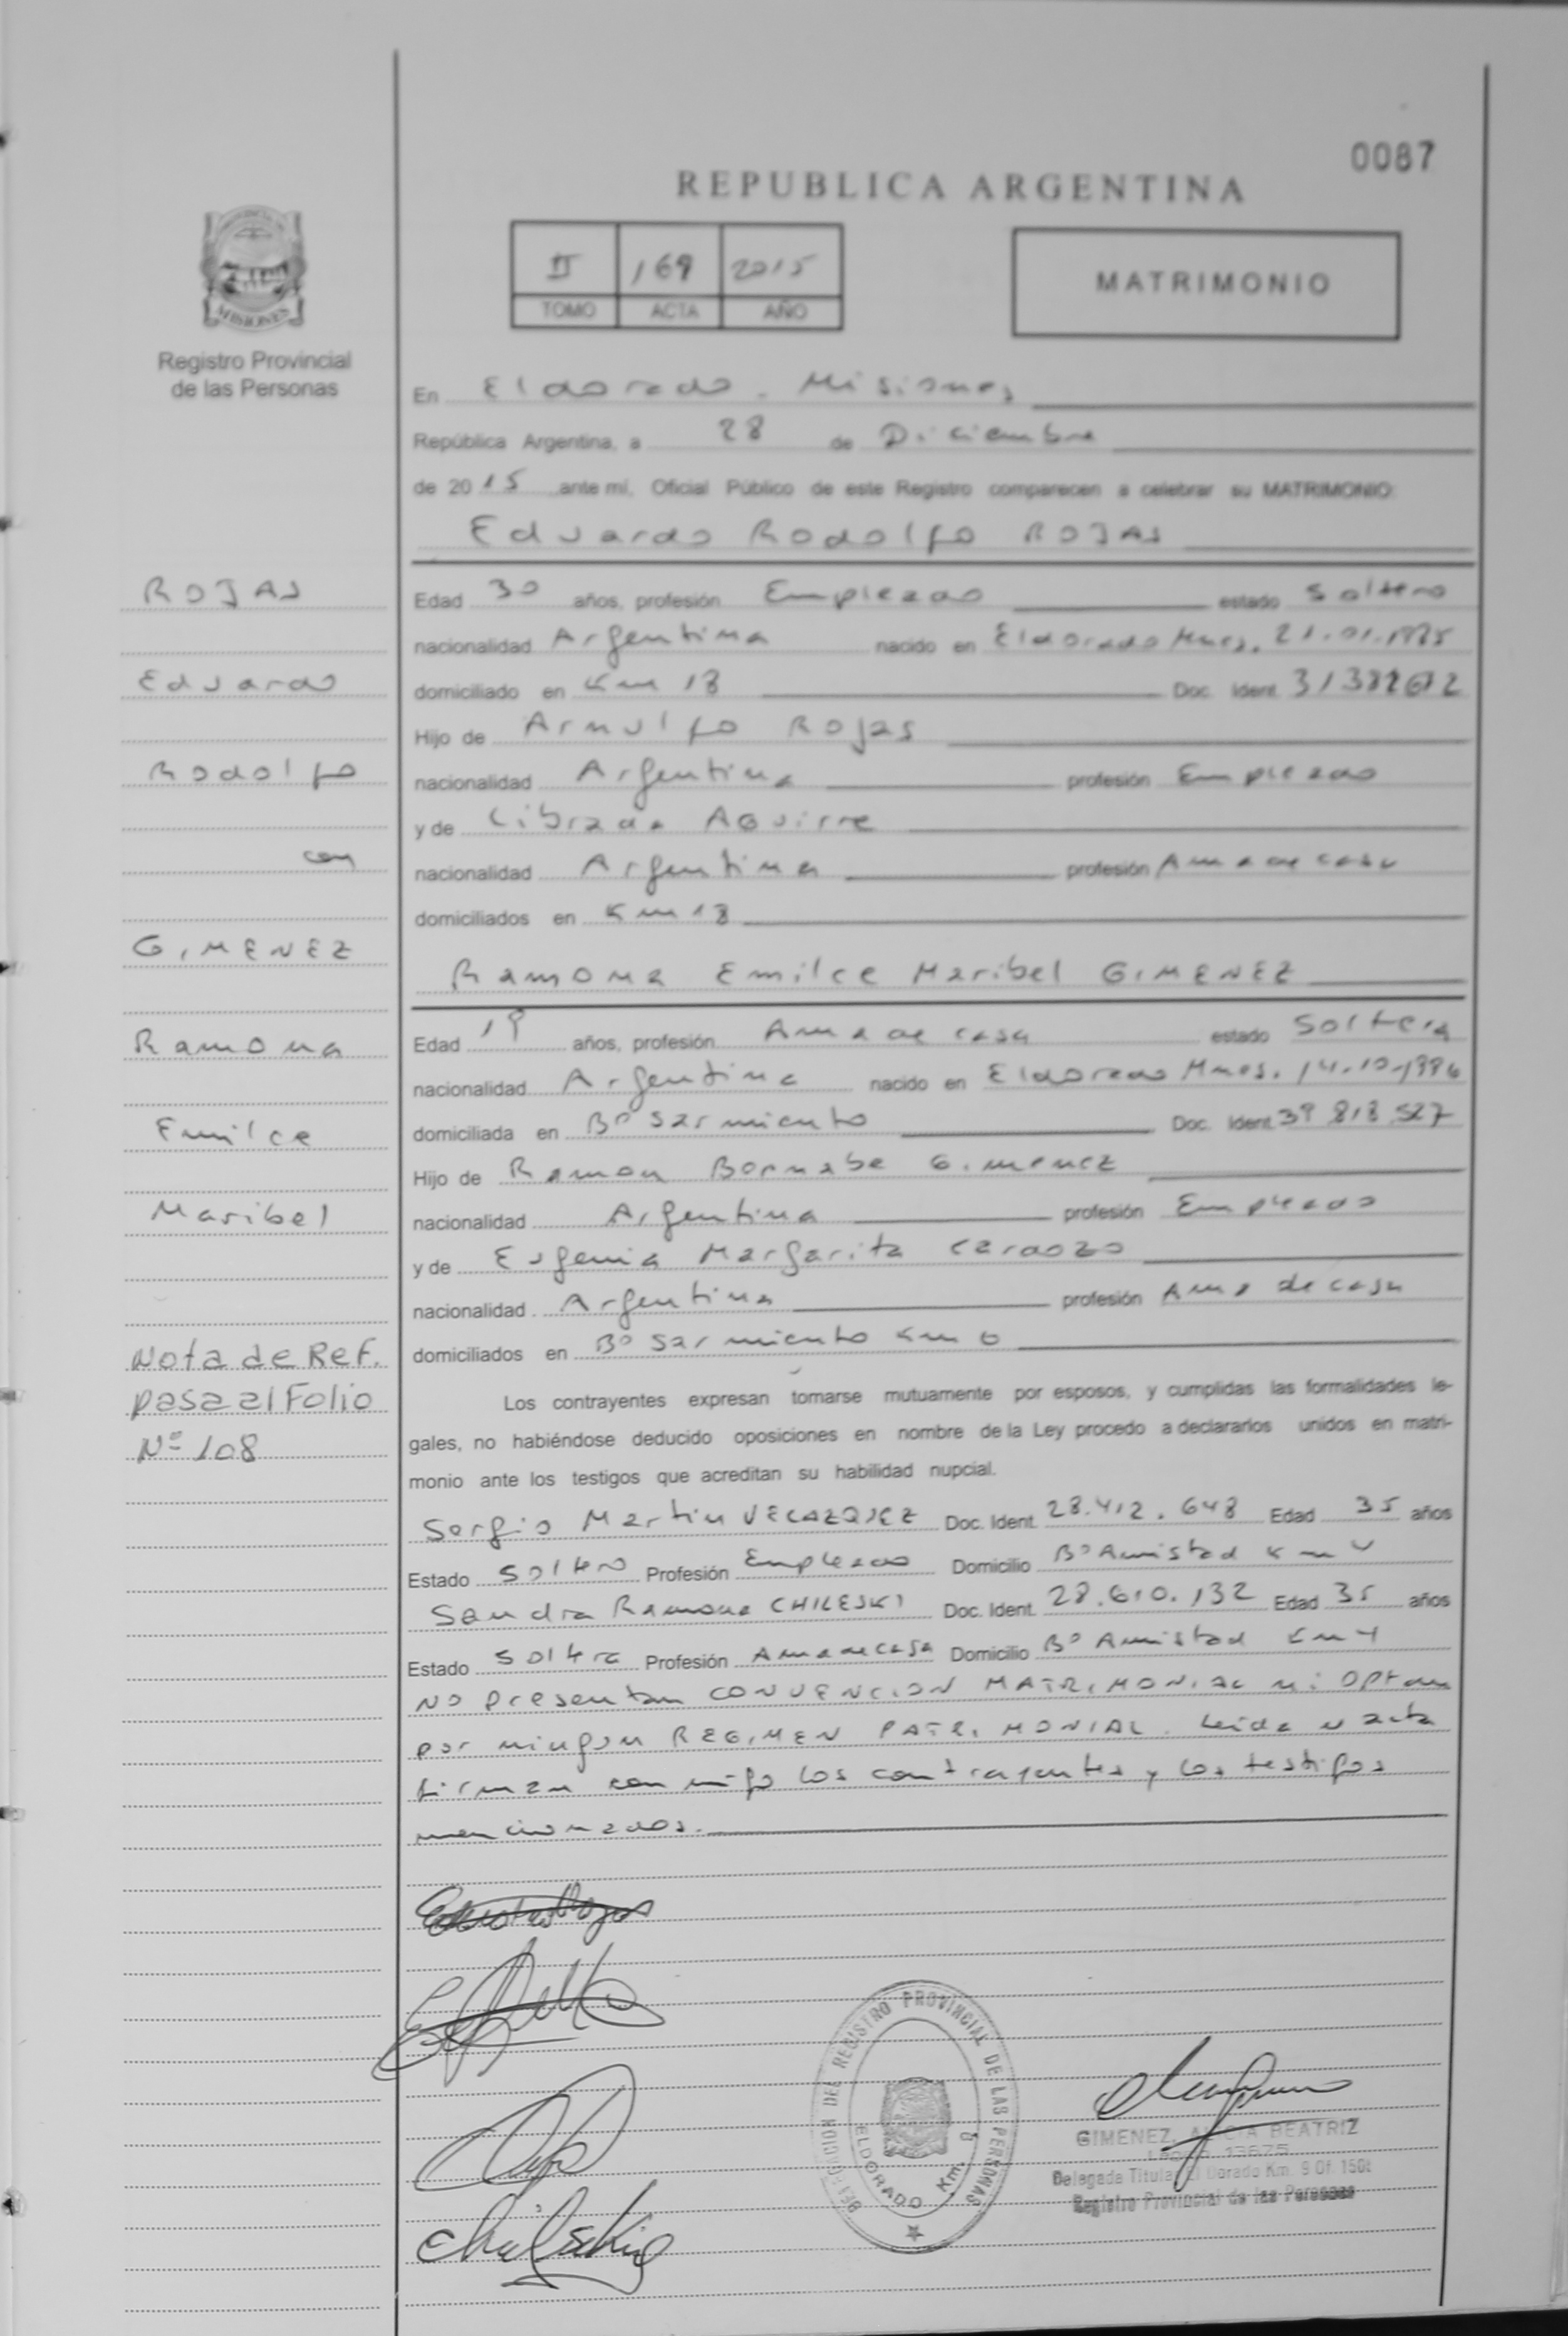 0087
REPUBLICA ARGENTINA
II 169 2015
TOMO ACTA AÑO
MATRIMONIO
MISIONES
Registro Provincial
de las Personas
En Eldorado - Misiones
República Argentina, a 28 de Diciembre
de 2015 ante mí, Oficial Público de este Registro comparecen a celebrar su MATRIMONIO:
Eduardo Rodolfo ROJAS
Edad 30 años, profesión Empleado estado Soltero
nacionalidad Argentina nacido en Eldorado Mnes. 21.01.1985
domiciliado en Km 18 Doc. Ident.
Hijo de Arnulfo Rojas
nacionalidad Argentina profesión Empleado
y de Librada Aguirre
nacionalidad Argentina profesión Ama de casa
domiciliados en Km 18
Ramona Emilce Maribel GIMENEZ
Edad 19 años, profesión Ama de casa estado Soltera
nacionalidad Argentina nacido en Eldorado Mnes. 14-10-1996
domiciliada en Bº Sarmiento Doc. Ident. 39.813.527
Hijo de Ramon Bernabe Gimenez
nacionalidad Argentina profesión Empleado
y de Eugenia Margarita Cardozo
nacionalidad Argentina profesión Ama de casa
domiciliados en Bº Sarmiento Km 6
Los contrayentes expresan tomarse mutuamente por esposos, y cumplidas las formalidades le-
gales, no habiéndose deducido oposiciones en nombre de la Ley procedo a declararlos unidos en matri-
monio ante los testigos que acreditan su habilidad nupcial.
Sergio Martin VELAZQUEZ Doc. Ident. 28.412.648 Edad 35 años
Estado Soltero Profesión Empleado Domicilio Bº Amistad Km
Sandra Ramona CHILESKI Doc. Ident. 28.610.132 Edad 35 años
Estado Soltera Profesión Ama de casa Domicilio Bº Amistad Km 4
No presentan CONVENCION MATRIMONIAL ni optan
por ningun REGIMEN PATRIMONIAL. Leida el acta
firman conmigo los contrayentes y los testigos
mencionados.
ROJAS
Eduardo
Rodolfo
con
GIMENEZ
Ramona
Emilce
Maribel
Nota de Ref.
pasa al Folio
Nº 108
DELEGACION DEL REGISTRO PROVINCIAL DE LAS PERSONAS
ELDORADO Km. 9
GIMENEZ, ALICIA BEATRIZ
Delegada Titular El Dorado Km. 9 Of. 1501
Registro Provincial de las Personas